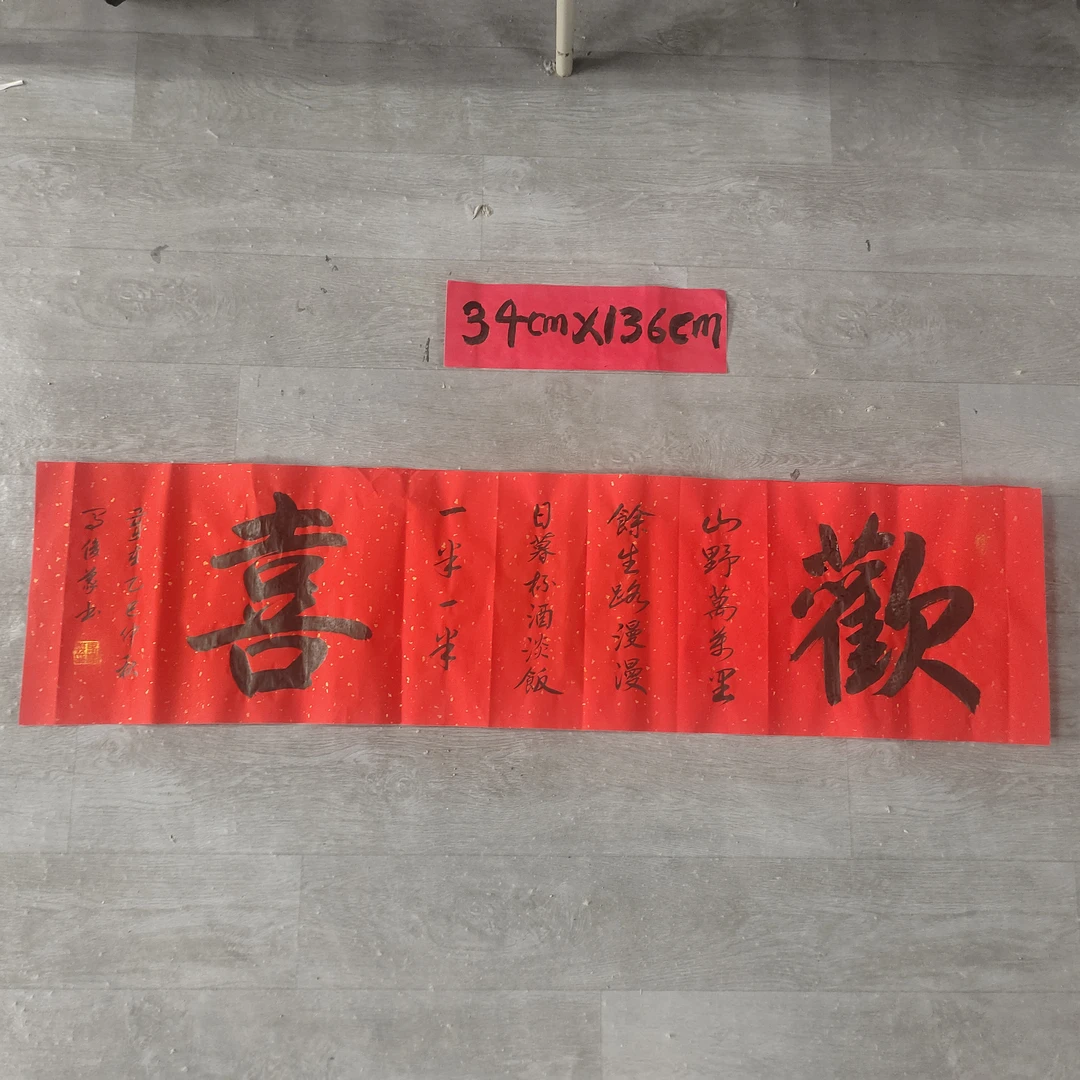 34cmx136cm
歡
山野萬萬里
餘生路漫漫
日暮杯酒淡飯
一半一半
喜
乙巳仲秋